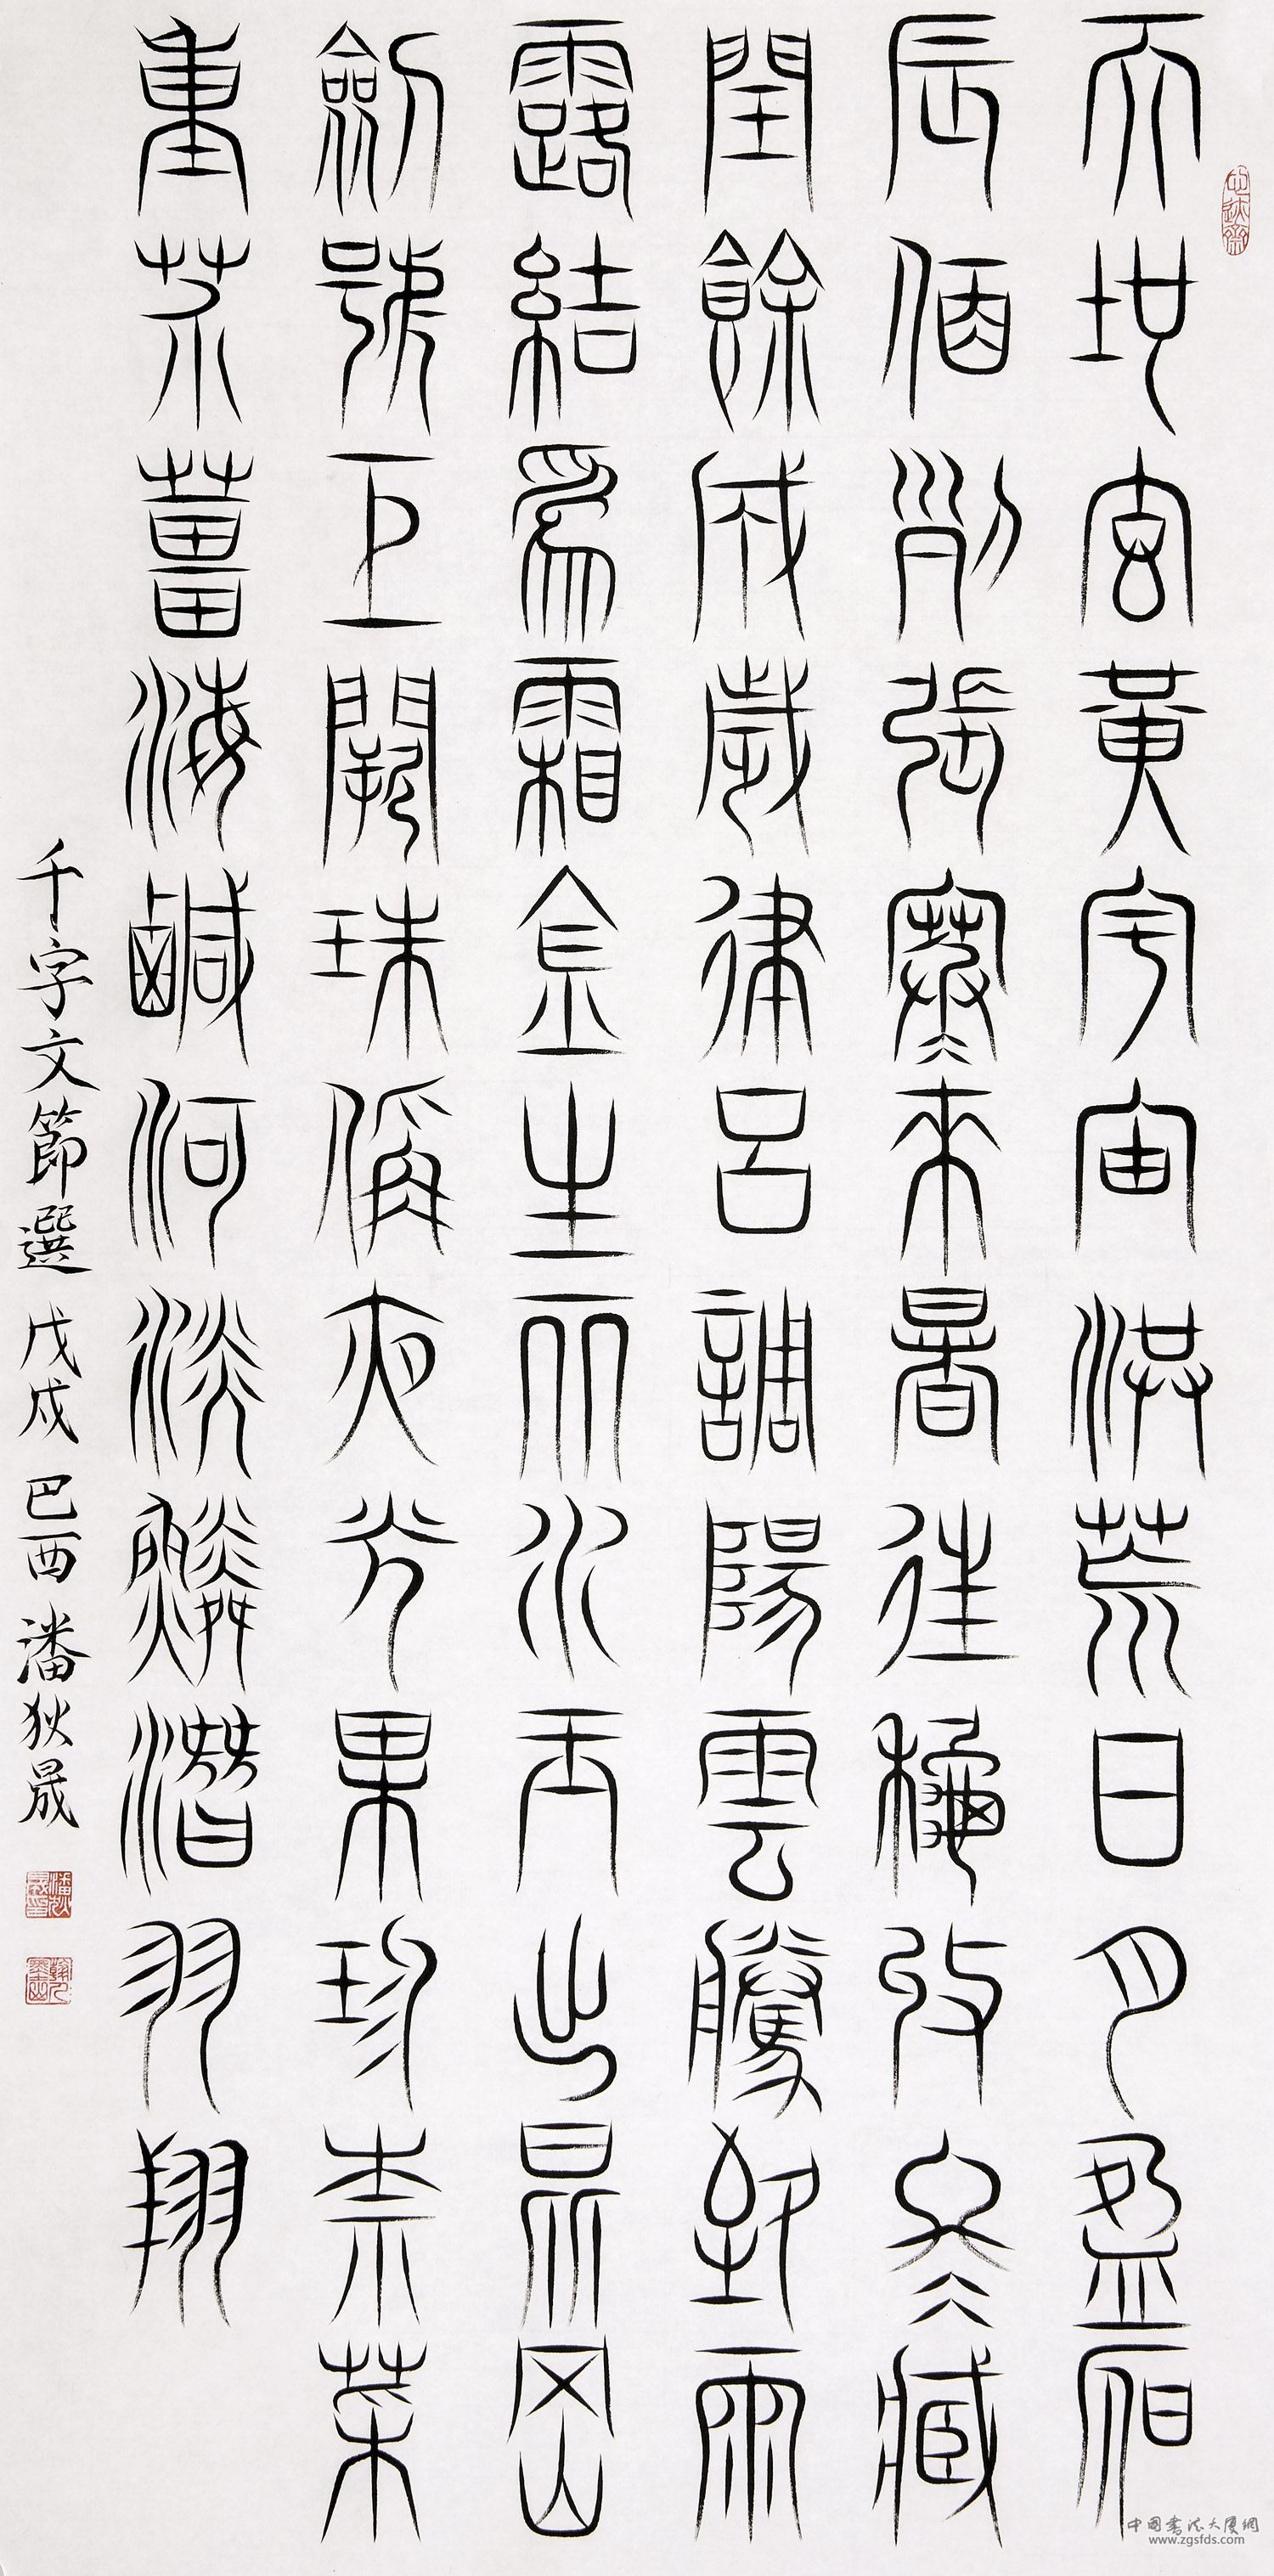 天地玄黃宇宙洪荒日月盈昃
辰宿列張寒來暑往秋收冬藏
閏餘成歲律呂調陽雲騰致雨
露結爲霜金生丽水玉出昆岡
劍號巨闕珠稱夜光果珍柰菜
重芥薑海鹹河淡鱗潛羽翔
千字文節選 戊戌 巴酉 潘狄晟
中國書法大廈網
www.zgsfds.com